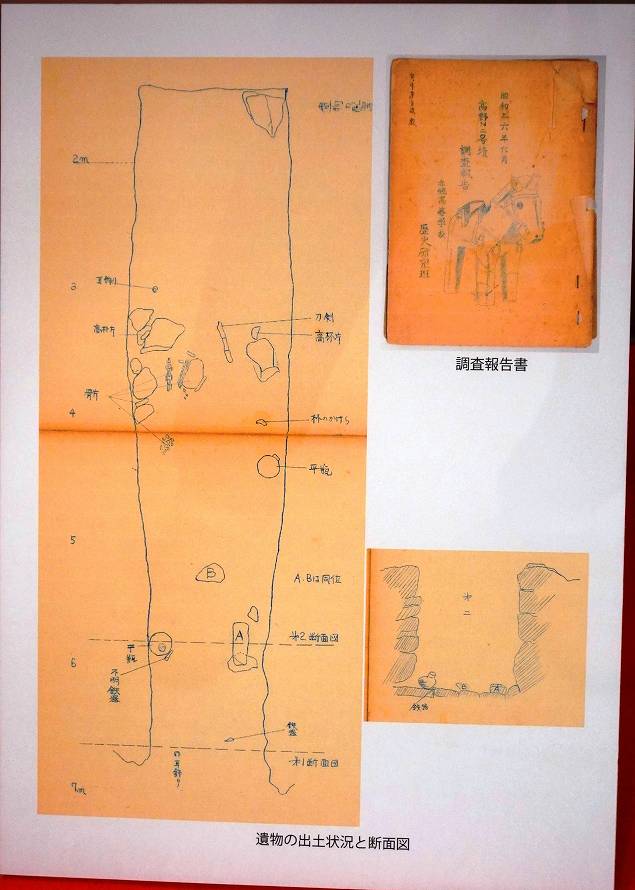 2m
3
耳飾り
高杯片
骨片
4
5
6
7m
刀剣
高杯片
杯のかけら
平瓶
B
A.Bは同位
A
才2断面図
平瓶
不明鉄器
鉄器
才1断面図
耳飾り
昭和二六年六月
調査報告
赤穂高等学校
歴史研究班
調査報告書
才二
B
A
鉄器
遺物の出土状況と断面図